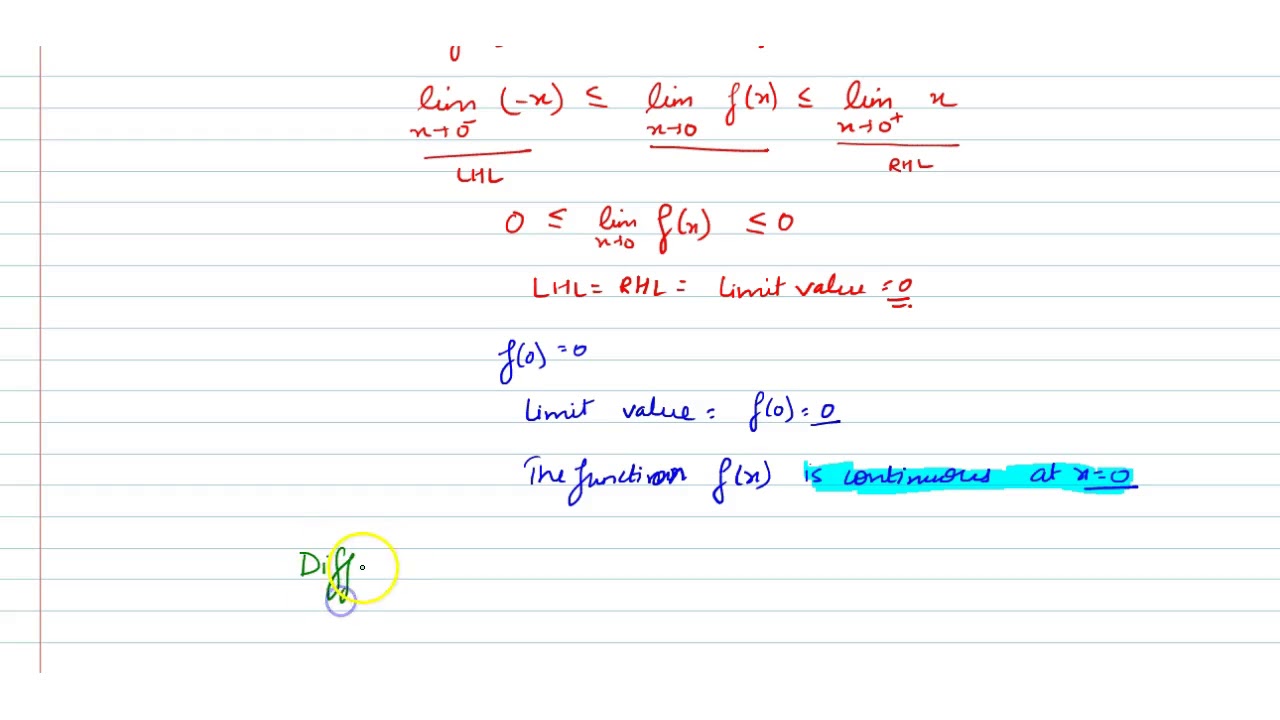 lim x→0⁻ (-x) ≤ lim x→0 f(x) ≤ lim x→0⁺ x
LHL RHL
0 ≤ lim x→0 f(x) ≤ 0
LHL = RHL = Limit value = 0
f(0) = 0
Limit value = f(0) = 0
The function f(x) is continuous at x=0
Diff